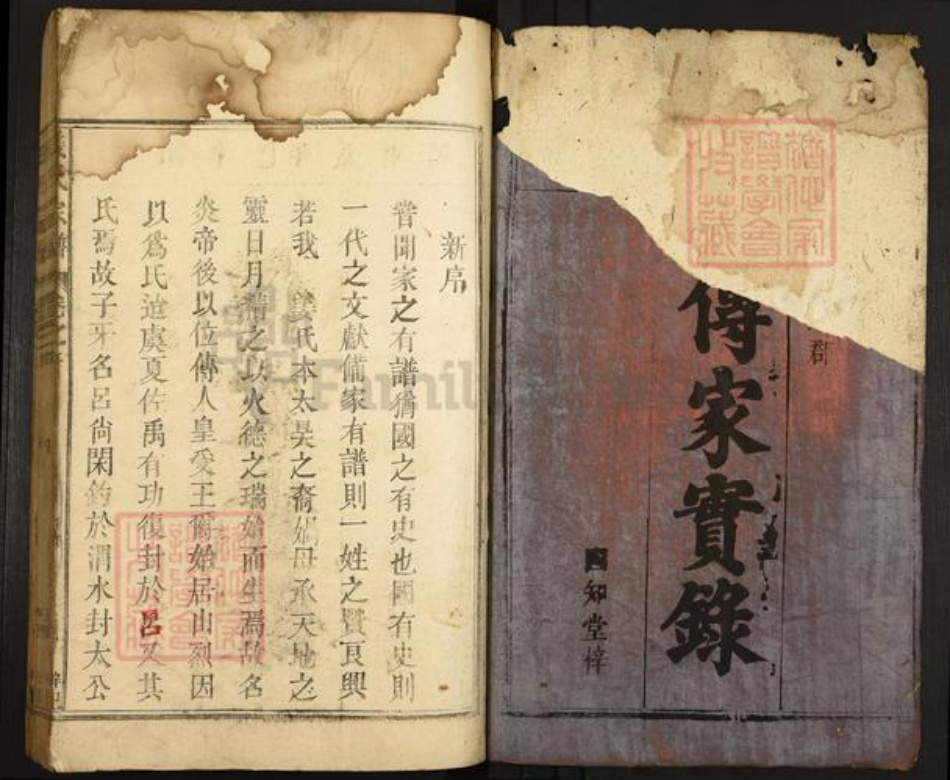 郡
傳家實錄
知堂梓
新序
嘗聞家之有譜猶國之有史也國有史則
一代之文獻備家有譜則一姓之賢良興
若我 姜氏本太昊之裔始母承天地之
靈日月精之以火德之瑞始而生焉故名
炎帝後以位傳人皇受王爾始居山烈因
以爲氏迨虞夏佐禹有功復封於呂又其
氏焉故子牙名呂尙閑釣於渭水封太公
氏家譜